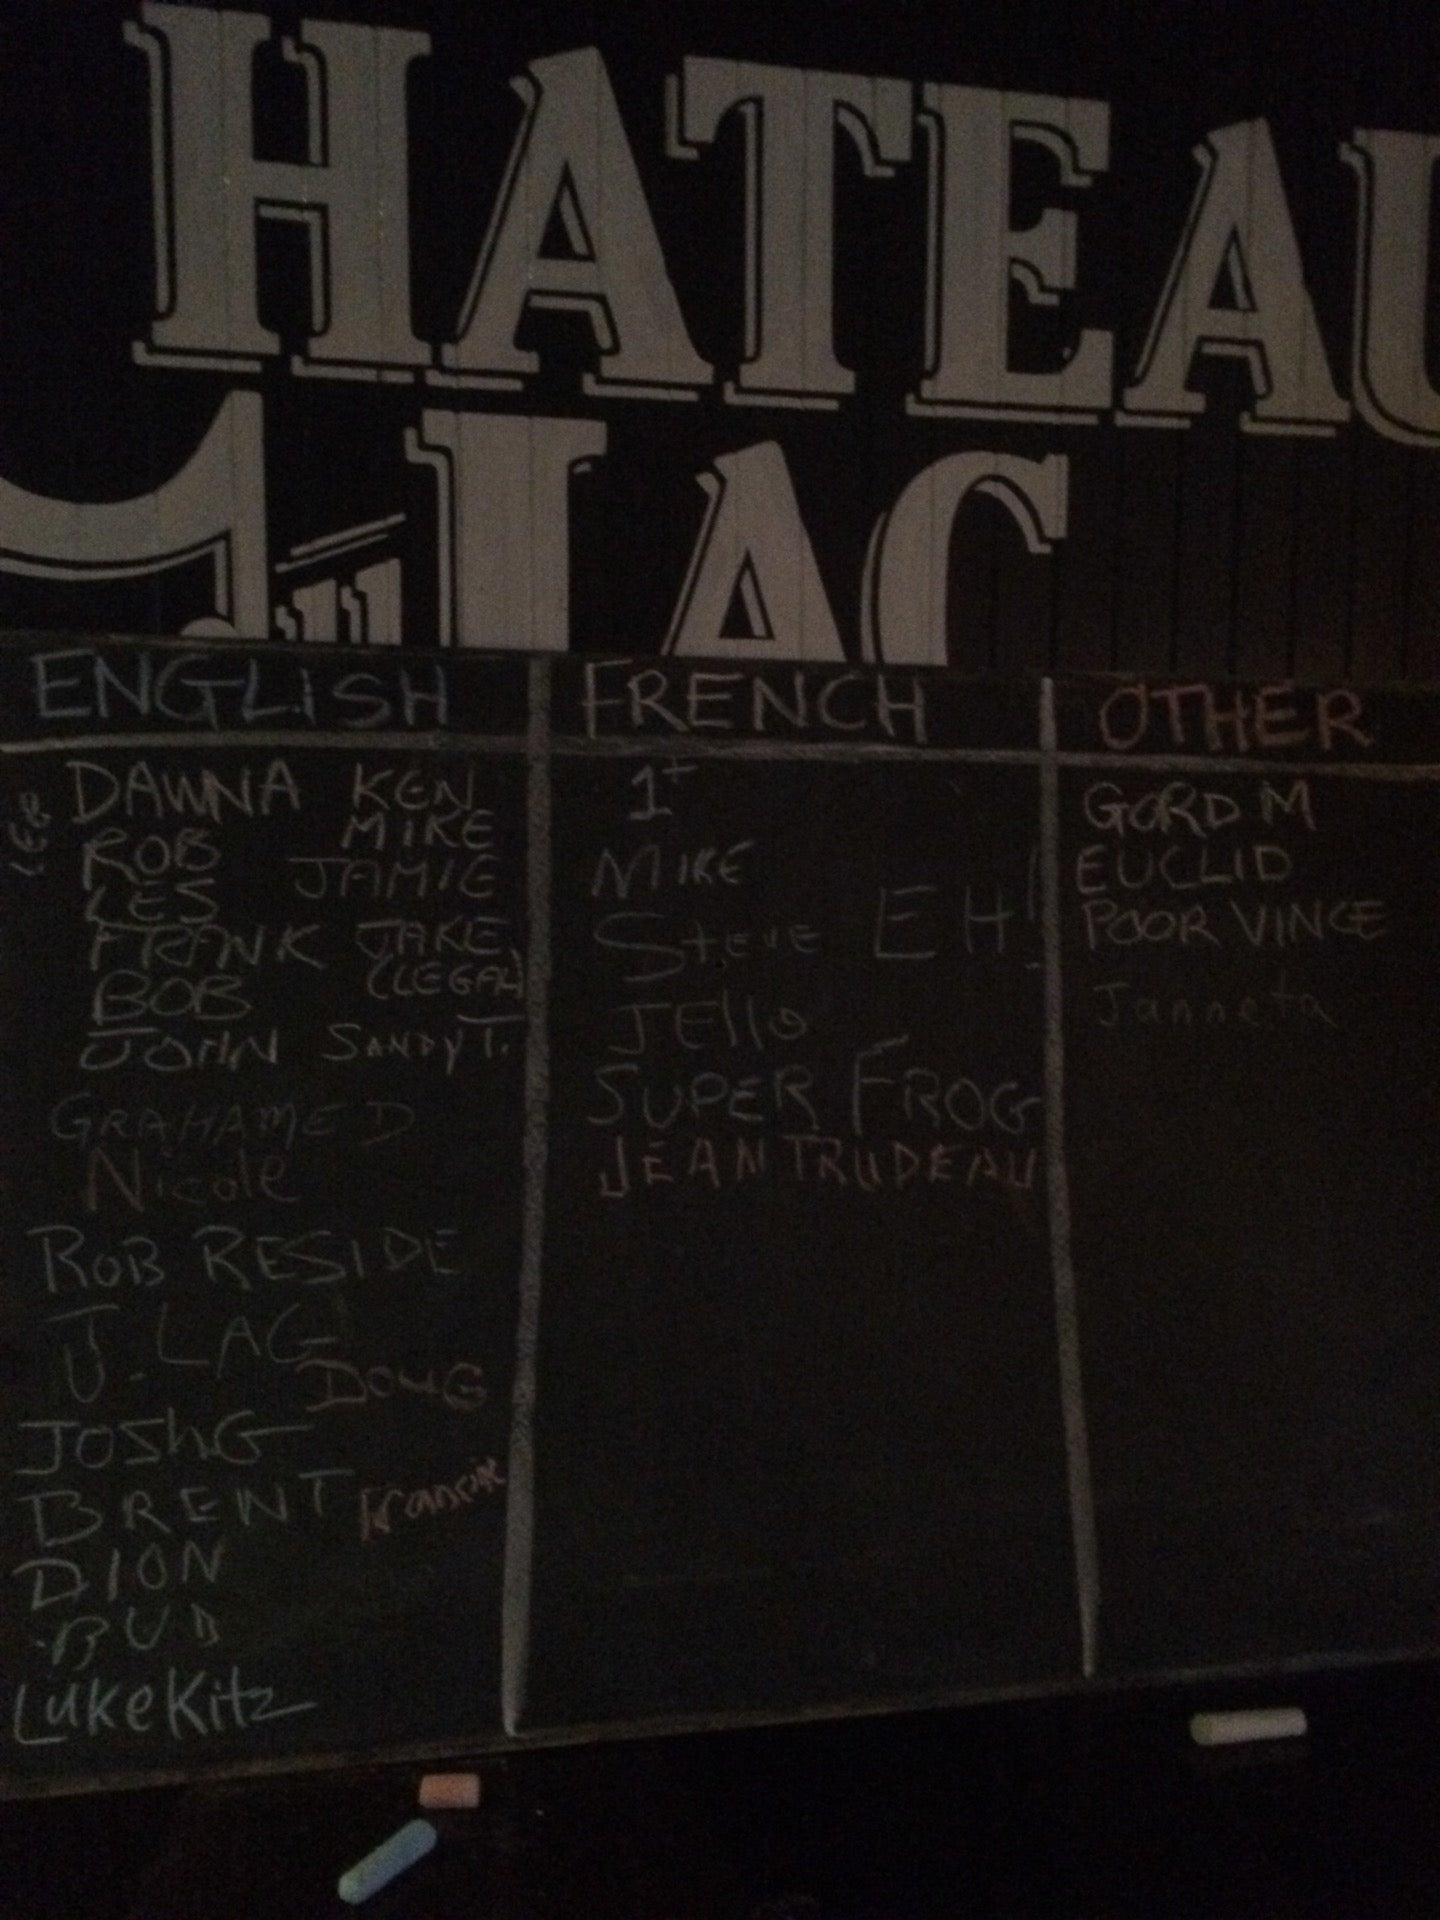 HATEAU
du LAC
ENGLISH FRENCH OTHER
DAWNA KEN
ROB MIKE
LES JAMIE
FRANK JAKE
BOB (LEGAL)
JOHN SANDY T.
GRAHAME D
Nicole
ROB RESIDE
J. LAG
DOUG
JOSHG
BRENT
DION
BUD
LukeKitz
1+
MIKE
Steve EH!
JEllo
SUPER FROG
JEAN TRUDEAU
GORD M
EUCLID
POOR VINCE
Janneta